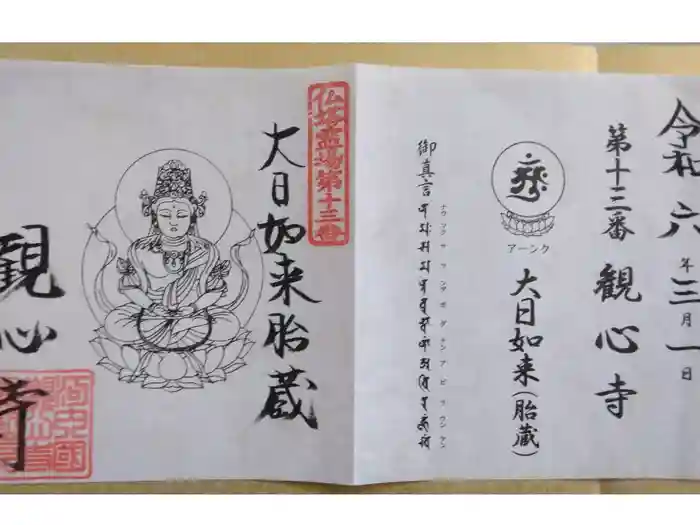 令和六年三月一日
第十三番 観心寺
アーンク
大日如来(胎蔵)
御真言
ナウマクサマンダボダナンアビラウンケン
仏塔霊場第十三番
大日如来胎蔵
観心寺